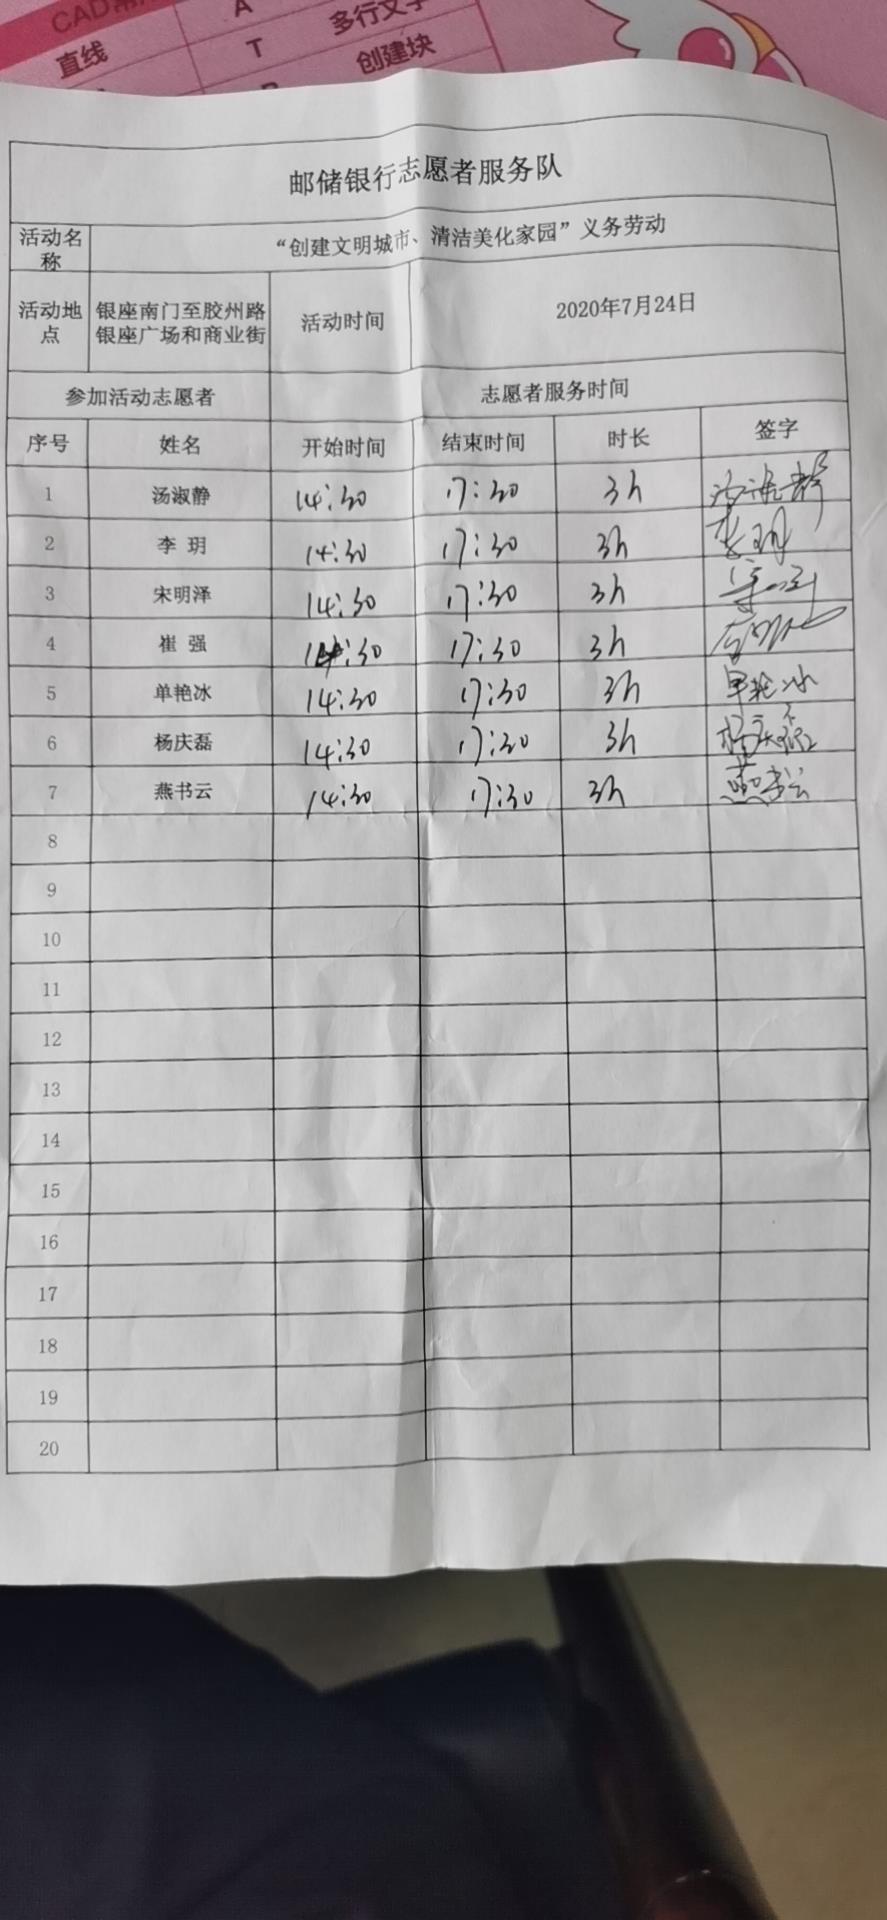 CAD
直线
A
多行文字
T
创建块
邮储银行志愿者服务队
活动名称
“创建文明城市、清洁美化家园”义务劳动
活动地点
银座南门至胶州路
银座广场和商业街
活动时间
2020年7月24日
参加活动志愿者
志愿者服务时间
序号 姓名 开始时间 结束时间 时长 签字
1 汤淑静 14:30 17:30 3h
2 李玥 14:30 17:30 3h 李玥
3 宋明泽 14:30 17:30 3h
4 崔强 14:30 17:30 3h
5 单艳冰 14:30 17:30 3h 单艳冰
6 杨庆磊 14:30 17:30 3h 杨庆磊
7 燕书云 14:30 17:30 3h 燕书云
8
9
10
11
12
13
14
15
16
17
18
19
20